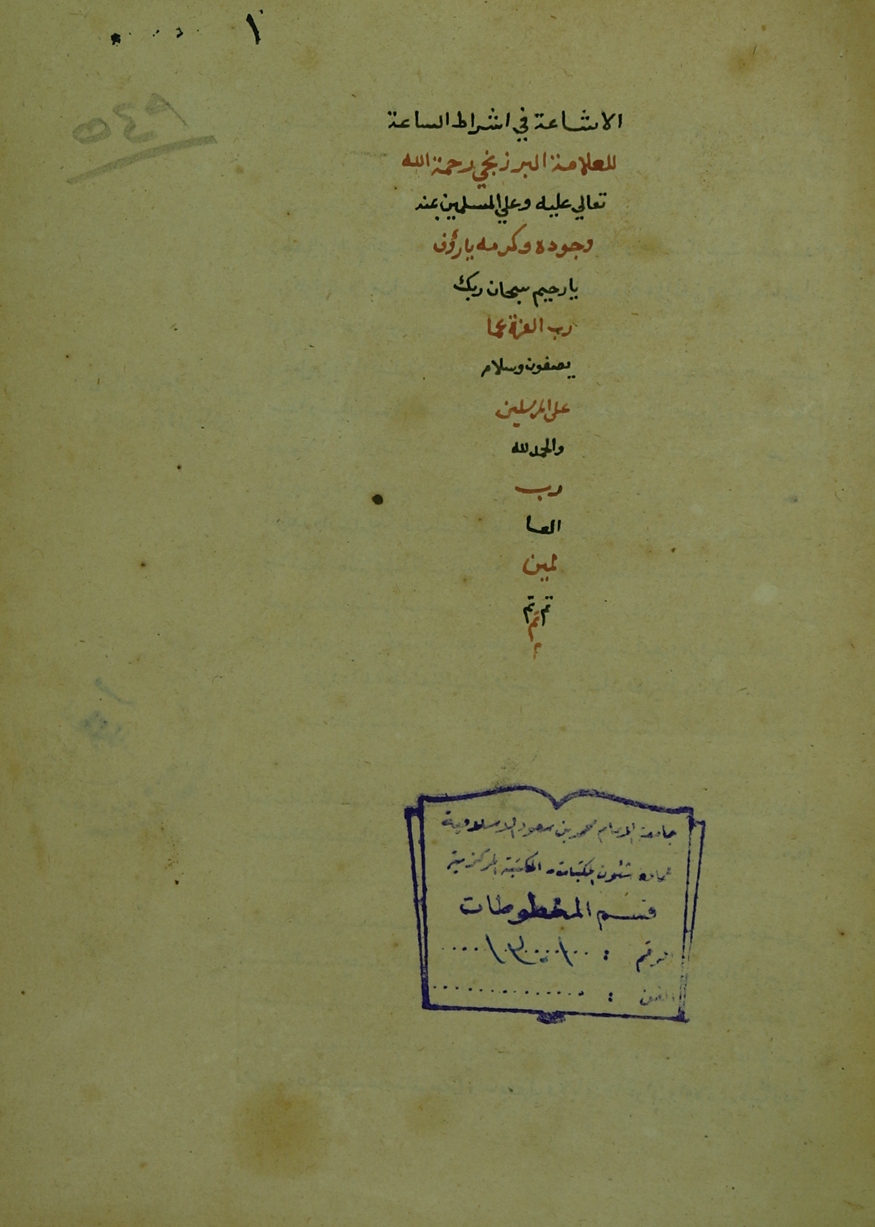 ١
٩٤٥
الاشاعة في اشراط الساعة
للعلامة البرزنجي رحمة الله
تعالى عليه وعلي المسلمين بمنه
وجوده وكرمه يارؤف
يارحيم سبحان ربك
رب العزة عما
يصفون وسلام
على المرسلين
والحمد لله
رب
العا
لمين
تم تم
تم
م
جامعة الإمام محمد بن سعود الإسلامية
عمادة شئون المكتبات - المكتبة المركزية
قسم المخطوطات
الرقم :
الفن :